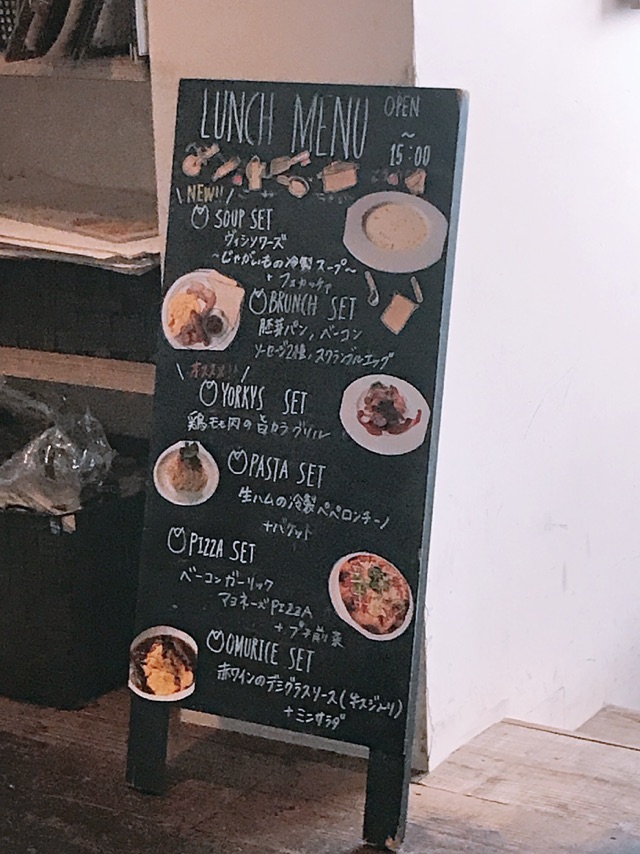 LUNCH MENU
OPEN
~
15:00
NEW!!
SOUP SET
ヴィシソワーズ
~じゃがいもの冷製スープ~
+ フォカッチャ
BRUNCH SET
胚芽パン, ベーコン
ソーセージ2種, スクランブルエッグ
オススメ!!
YORKYS SET
鶏モモ肉の旨カラグリル
PASTA SET
生ハムの冷製ペペロンチーノ
+バゲット
PIZZA SET
ベーコンガーリック
マヨネーズPIZZA
+ プチ前菜
OMURICE SET
赤ワインのデミグラスソース(牛スジ入り)
+ミニサラダ